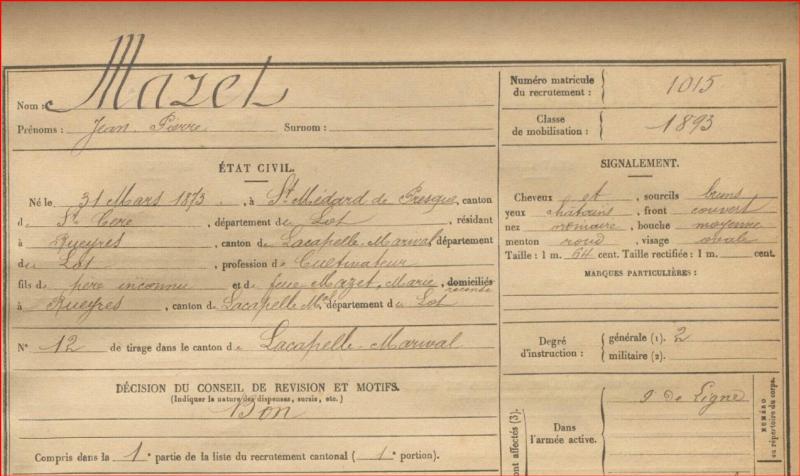 Nom : Mazet
Prénoms : Jean Pierre Surnom :
ÉTAT CIVIL.
Né le 31 Mars 1873, à St Médard de Presque, canton
de St Cere, département du Lot, résidant
à Rueyres, canton de Lacapelle-Marival département
du Lot, profession de Cultivateur
fils de père inconnu et de feue Mazet, Marie, domiciliés
à Rueyres, canton de Lacapelle Mal département du Lot
N° 12 de tirage dans le canton de Lacapelle-Marival
DÉCISION DU CONSEIL DE REVISION ET MOTIFS.
(Indiquer la nature des dispenses, sursis, etc.)
Bon
Compris dans la 1e partie de la liste du recrutement cantonal ( 1e portion).
Numéro matricule
du recrutement : 1015
Classe
de mobilisation : 1893
SIGNALEMENT.
Cheveux et, sourcils bruns
yeux chatains, front couvert
nez ordinaire, bouche moyenne
menton rond, visage ovale
Taille : 1 m. 64 cent. Taille rectifiée : 1 m. cent.
MARQUES PARTICULIÈRES :
Degré
d'instruction :
générale (1). 2
militaire (2).
Dans
l'armée active.
9 de Ligne
NUMÉRO
au répertoire du corps.
affectés (3).